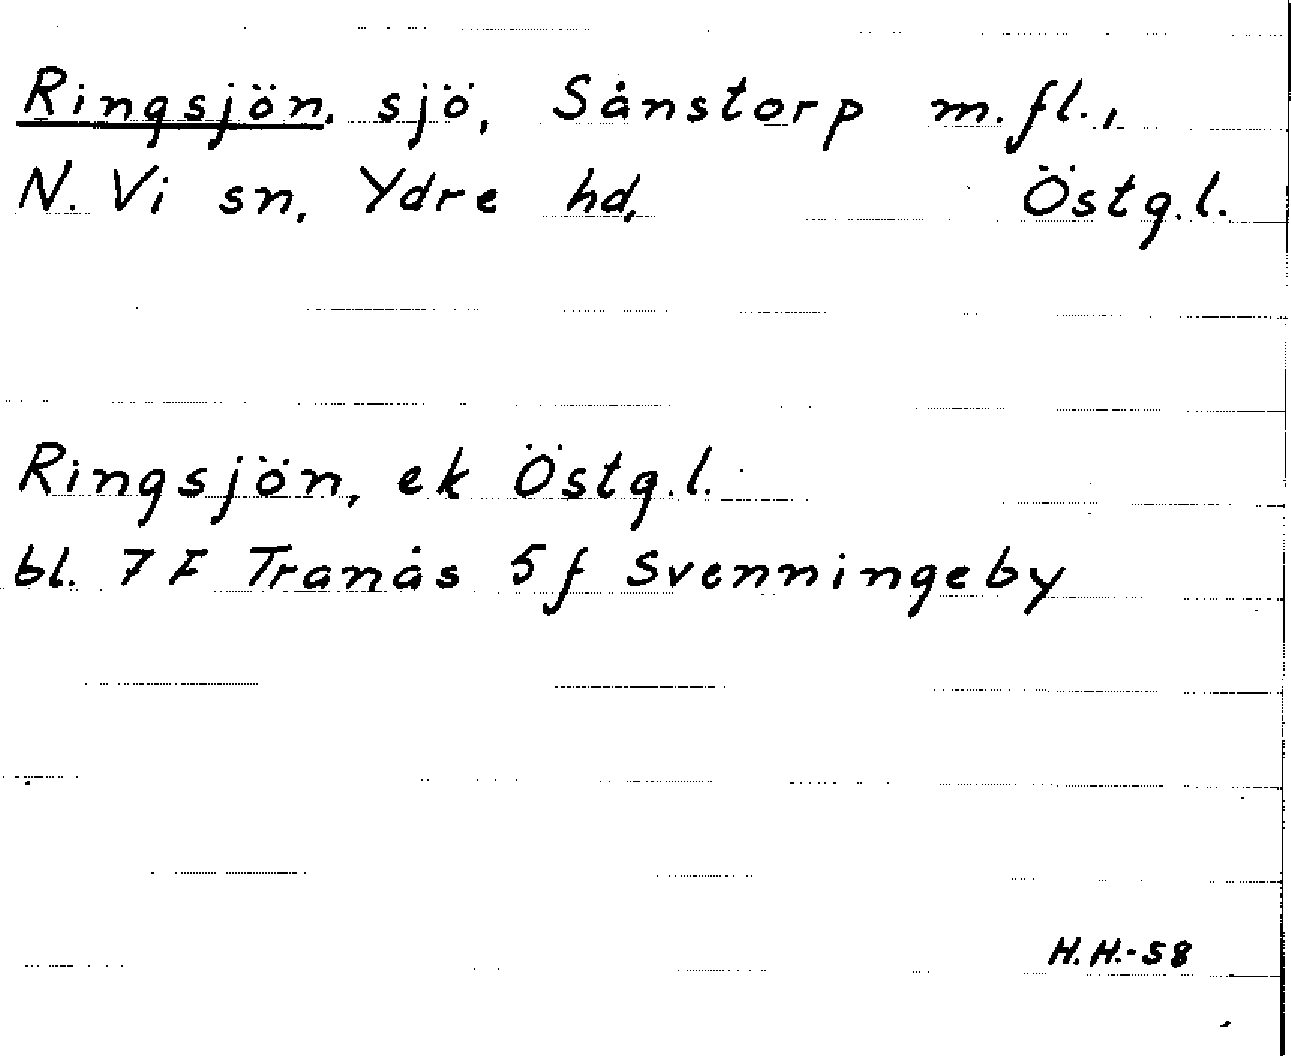 Ringsjön, sjö, Sånstorp m.fl.,
N. Vi sn, Ydre hd, Östg.l.
Ringsjön, ek Östg.l.
bl. 7 F Tranås 5 f Svenningeby
H.H.-58